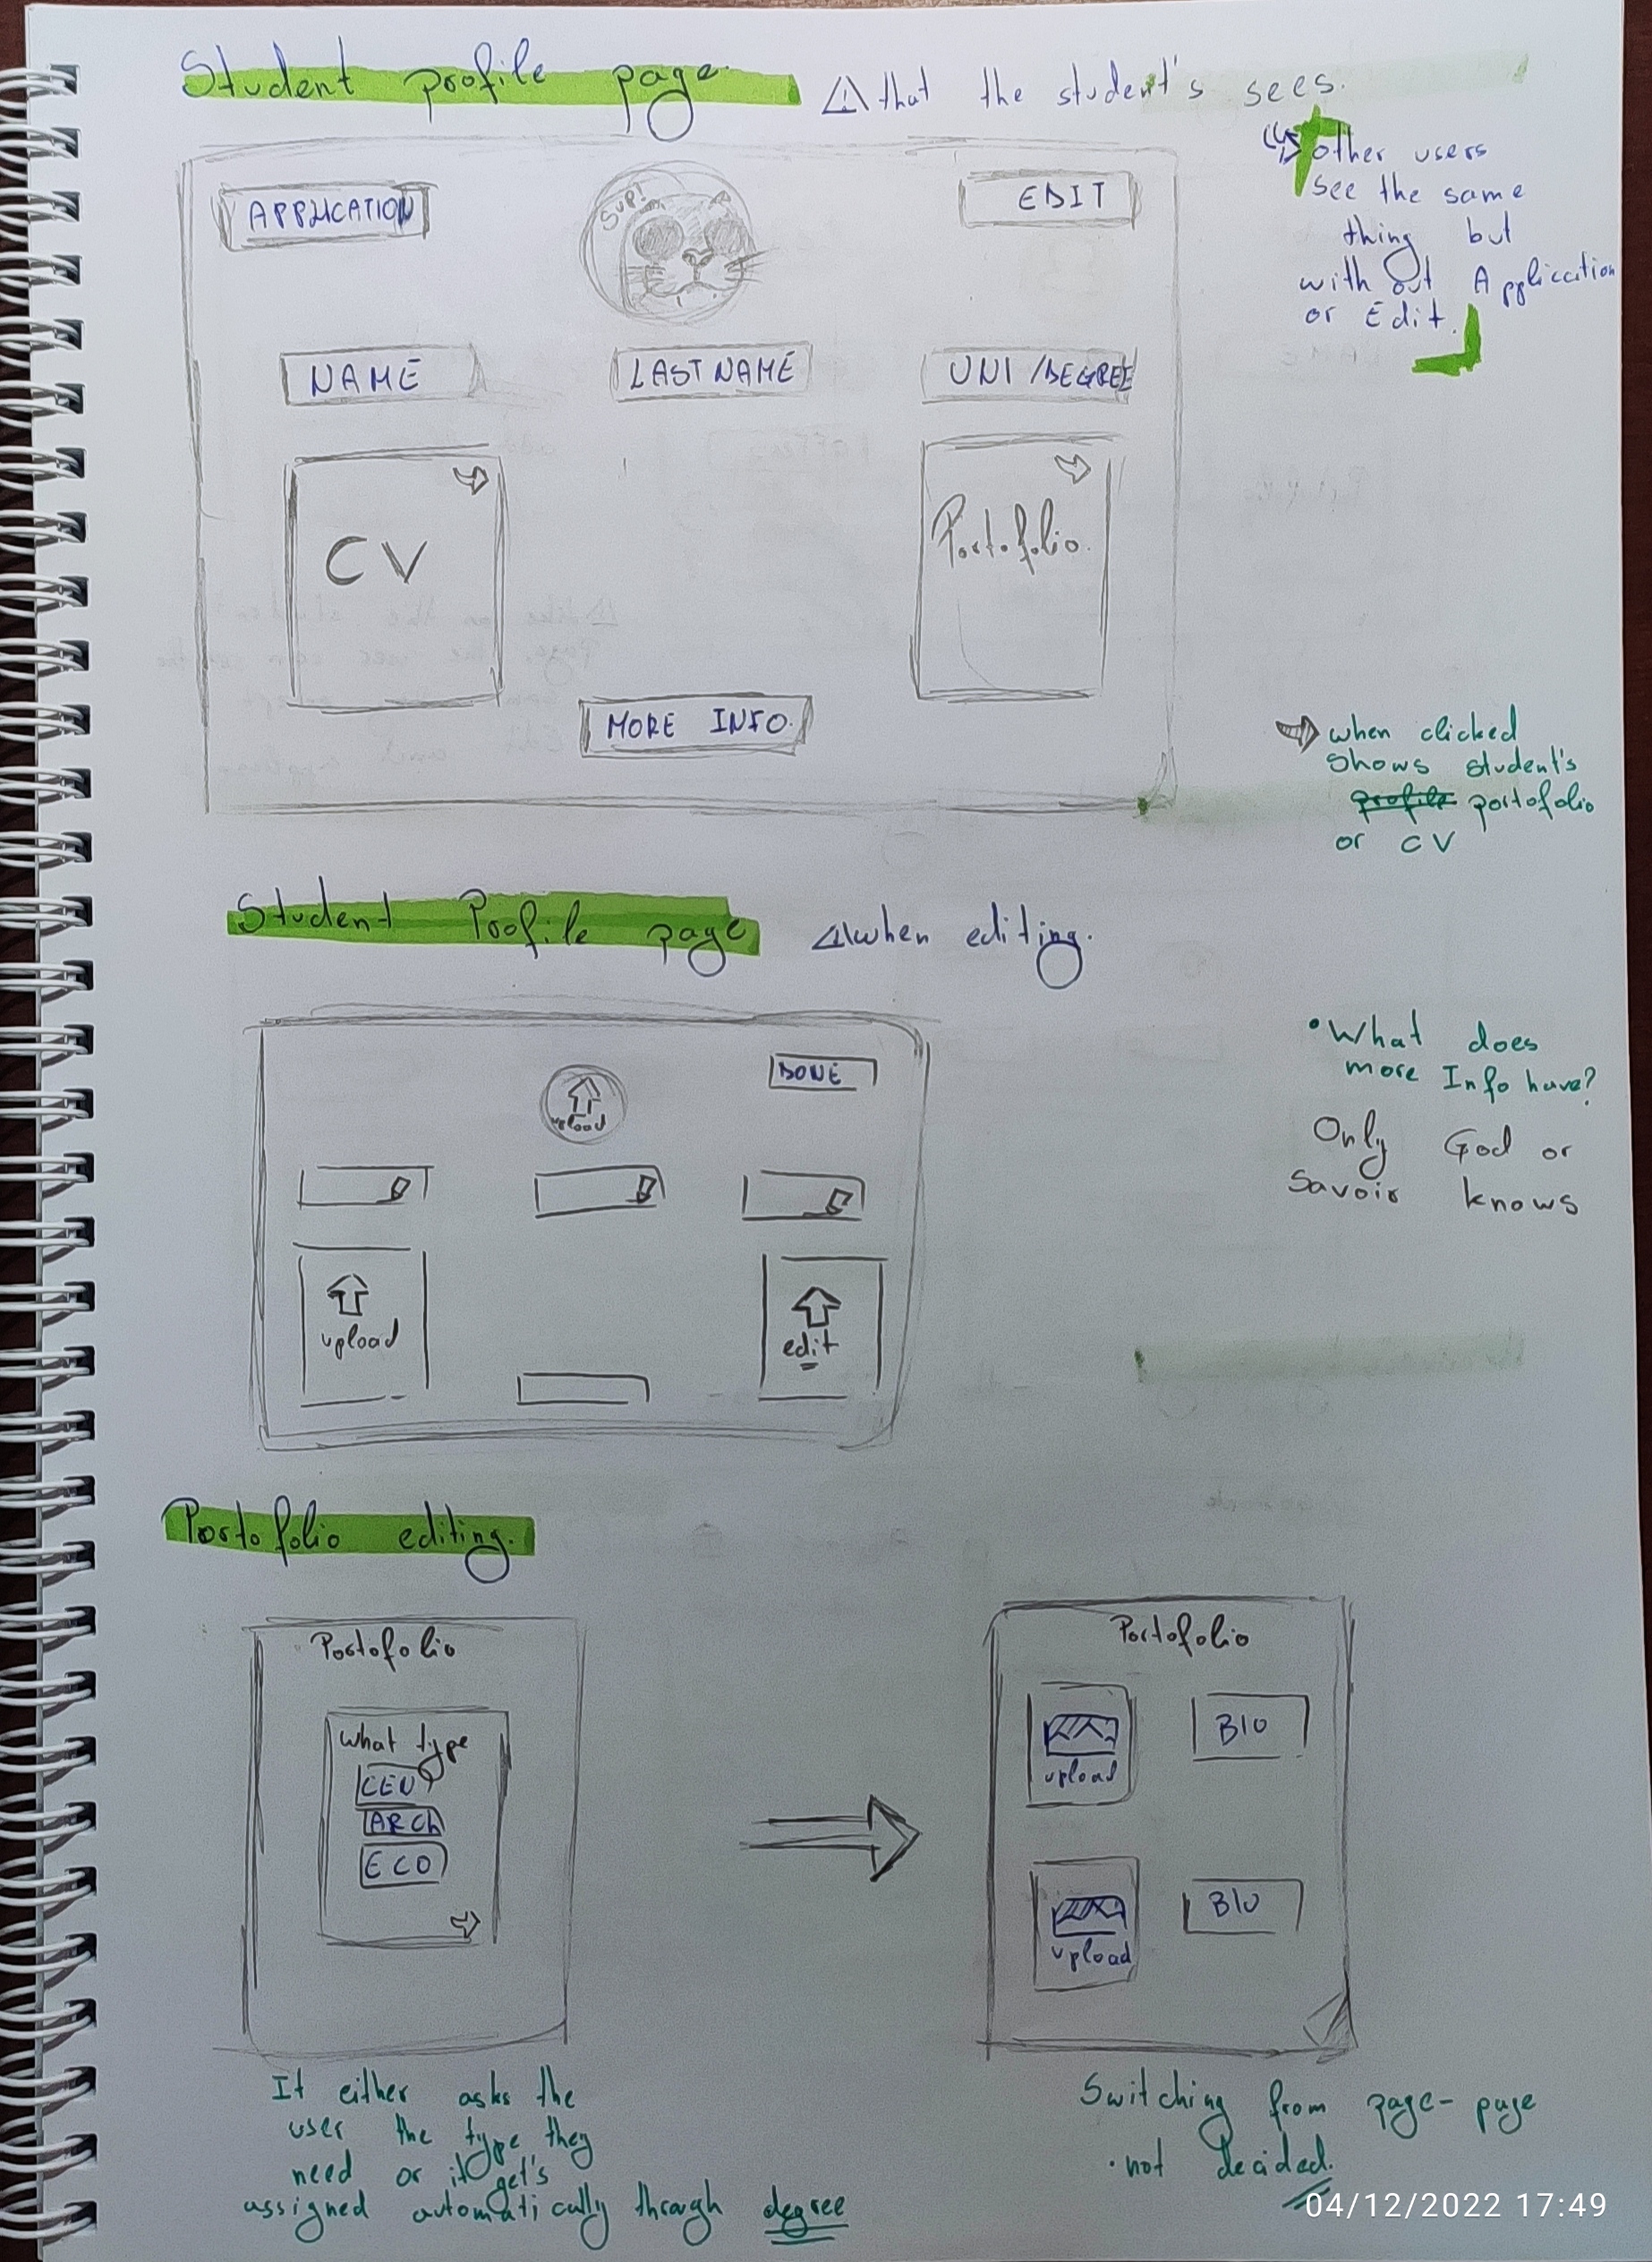 Student profile page.
⚠ that the student's sees.
other users
see the same
thing but
with out Application
or Edit.
APPLICATION
SUP!
EDIT
NAME
LAST NAME
UNI /DEGREE
CV
Portofolio.
MORE INFO.
⇒ when clicked
shows student's
profile portofolio
or CV
Student Profile page
⚠ when editing.
DONE
upload
upload
edit
• What does
more Info have?
Only God or
Savoir knows
Portofolio editing.
Portofolio
what type
CEN
ARCh
ECO
Portofolio
upload
BIO
upload
BIO
It either asks the
user the type they
need or it get's
assigned automatically through degree
Switching from page - page
• not decided.
04/12/2022 17:49